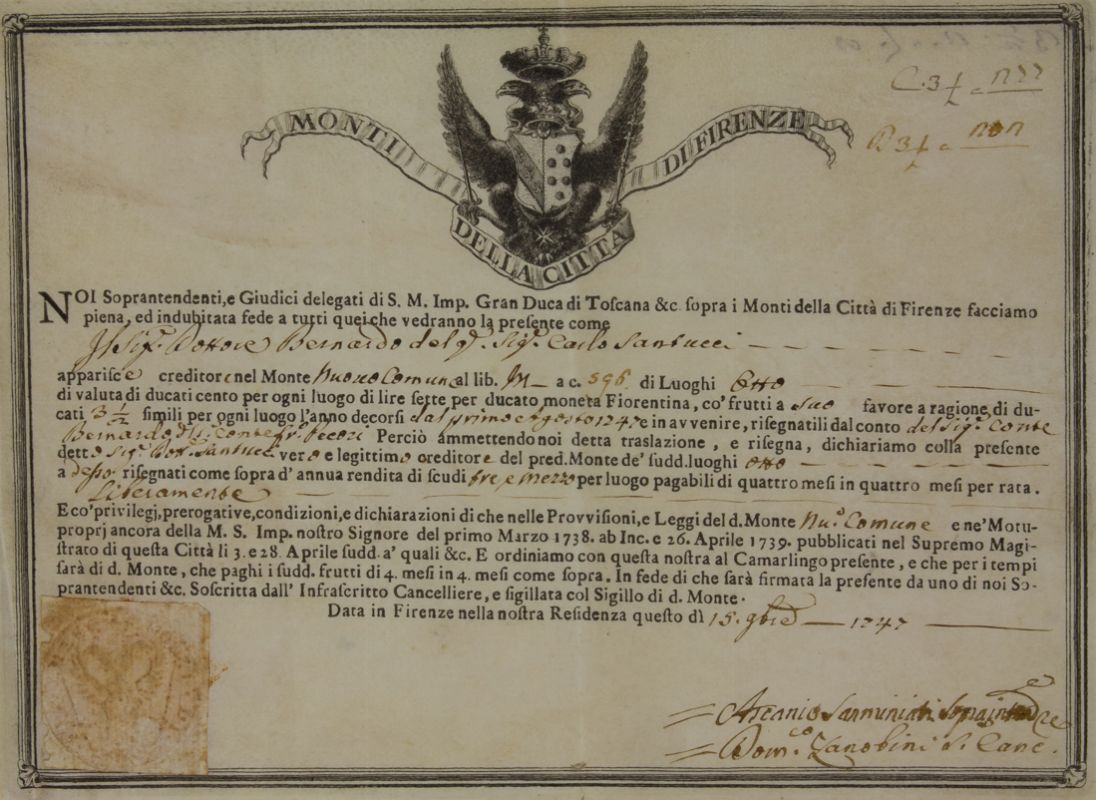 MONTI
DI FIRENZE
DELLA CITTA
C. 3
3
NOI Soprantendenti, e Giudici delegati di S. M. Imp. Gran Duca di Toscana &c. sopra i Monti della Città di Firenze facciamo
piena, ed indubitata fede a tutti quei che vedranno la presente come
Il Sig.r Dottore Bernardo del q. Sig.r Carlo Santucci
apparisce creditore nel Monte Nuovo Comune al lib. M a c. 596. di Luoghi Otto
di valuta di ducati cento per ogni luogo di lire sette per ducato moneta Fiorentina, co' frutti a suo favore a ragione di du-
cati 3 1/2 simili per ogni luogo l'anno decorsi dal primo Agosto 1747 e in avvenire, risegnatili dal conto del Sig.r Conte
Bernardo Conte Pecori Perciò ammettendo noi detta traslazione, e risegna, dichiariamo colla presente
detto Sig.r Dott. Santucci vero e legittimo creditore del pred. Monte de' sudd. luoghi otto
a desso risegnati come sopra d' annua rendita di scudi tre e mezzo per luogo pagabili di quattro mesi in quattro mesi per rata.
Liberamente
E co' privilegj, prerogative, condizioni, e dichiarazioni di che nelle Provvisioni, e Leggi del d. Monte Nu.o Comune e ne' Motu-
proprj ancora della M. S. Imp. nostro Signore del primo Marzo 1738. ab Inc. e 26. Aprile 1739. pubblicati nel Supremo Magi-
strato di questa Città li 3. e 28. Aprile sudd. a' quali &c. E ordiniamo con questa nostra al Camarlingo presente, e che per i tempi
sarà di d. Monte, che paghi i sudd. frutti di 4. mesi in 4. mesi come sopra. In fede di che sarà firmata la presente da uno di noi So-
prantendenti &c. Soscritta dall' Infrascritto Cancelliere, e sigillata col Sigillo di d. Monte.
Data in Firenze nella nostra Residenza questo dì 15. 9bre 1747
Ascanio Sanminiati Sopraintend.e
Dom.co Zanobini Canc.